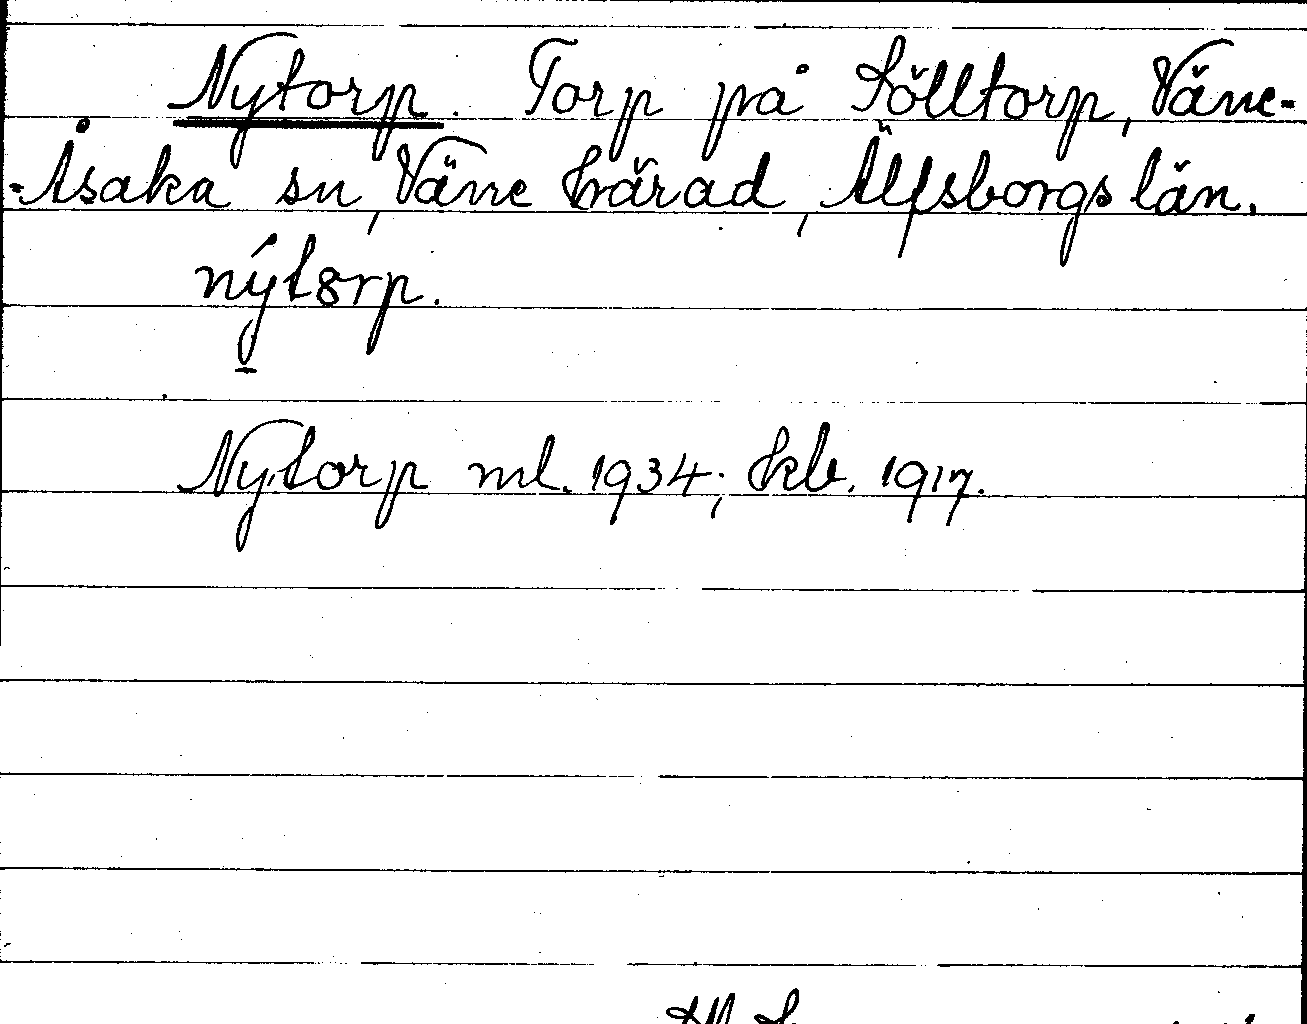 Nytorp. Torp på Sölltorp, Väne-
-Åsaka sn, Väne härad, Älfsborgs län.
nýtorp.
Nytorp ml. 1934; kb. 1917.